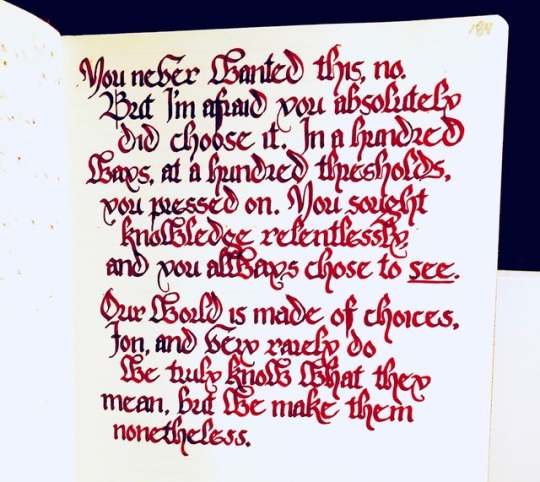 You never wanted this, no.
But I'm afraid you absolutely
did choose it. In a hundred
ways, at a hundred thresholds,
you pressed on. You sought
knowledge relentlessly,
and you always chose to see.
Our world is made of choices,
Jon, and very rarely do
we truly know what they
mean, but we make them
nonetheless.